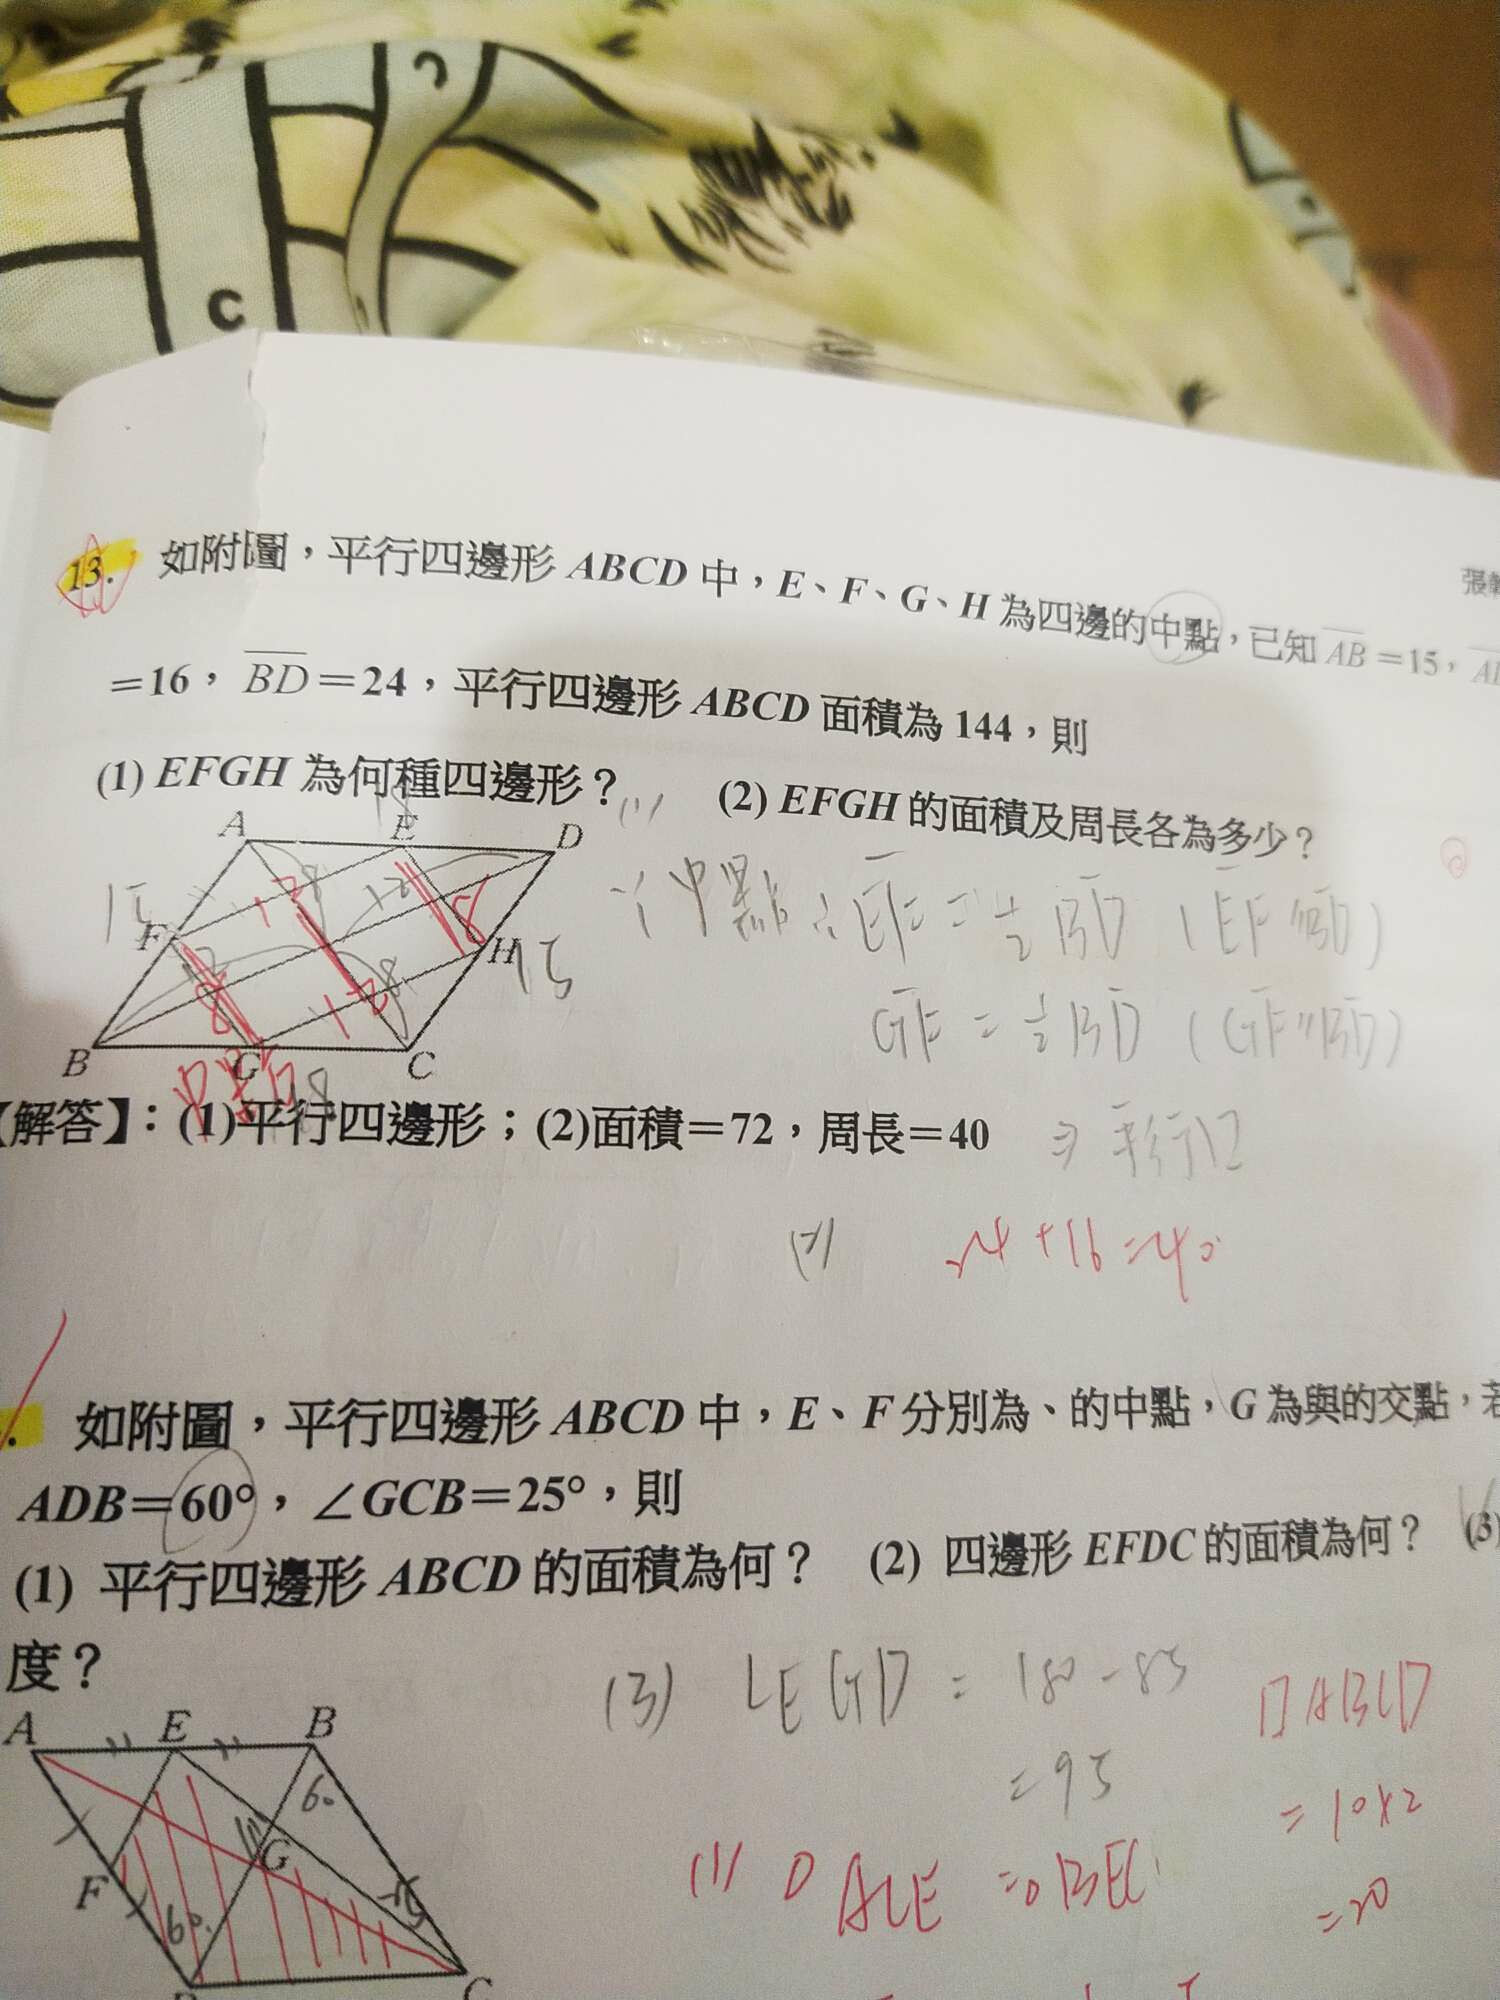 C
13. 如附圖，平行四邊形 ABCD 中，E、F、G、H 為四邊的中點，已知 AB＝15，
＝16，BD＝24，平行四邊形 ABCD 面積為 144，則
(1) EFGH 為何種四邊形？ (2) EFGH 的面積及周長各為多少？
18
(1)
A E D
15 F 12 8 12 8 H 15
∵中點∴EF＝½BD（EF//BD）
12 8 12 8
B G C
中點 18
【解答】：(1)平行四邊形；(2)面積＝72，周長＝40
(2) 24+16=40
如附圖，平行四邊形 ABCD 中，E、F 分別為、的中點，G 為與的交點，若
ADB＝60°，∠GCB＝25°，則
(1) 平行四邊形 ABCD 的面積為何？ (2) 四邊形 EFDC 的面積為何？ (3)
度？
(3) ∠EGD = 180-85
= 95
ABCD
= 10×2
= 20
A E B
60
G
F
60
25
C
(1) ACE = BEC